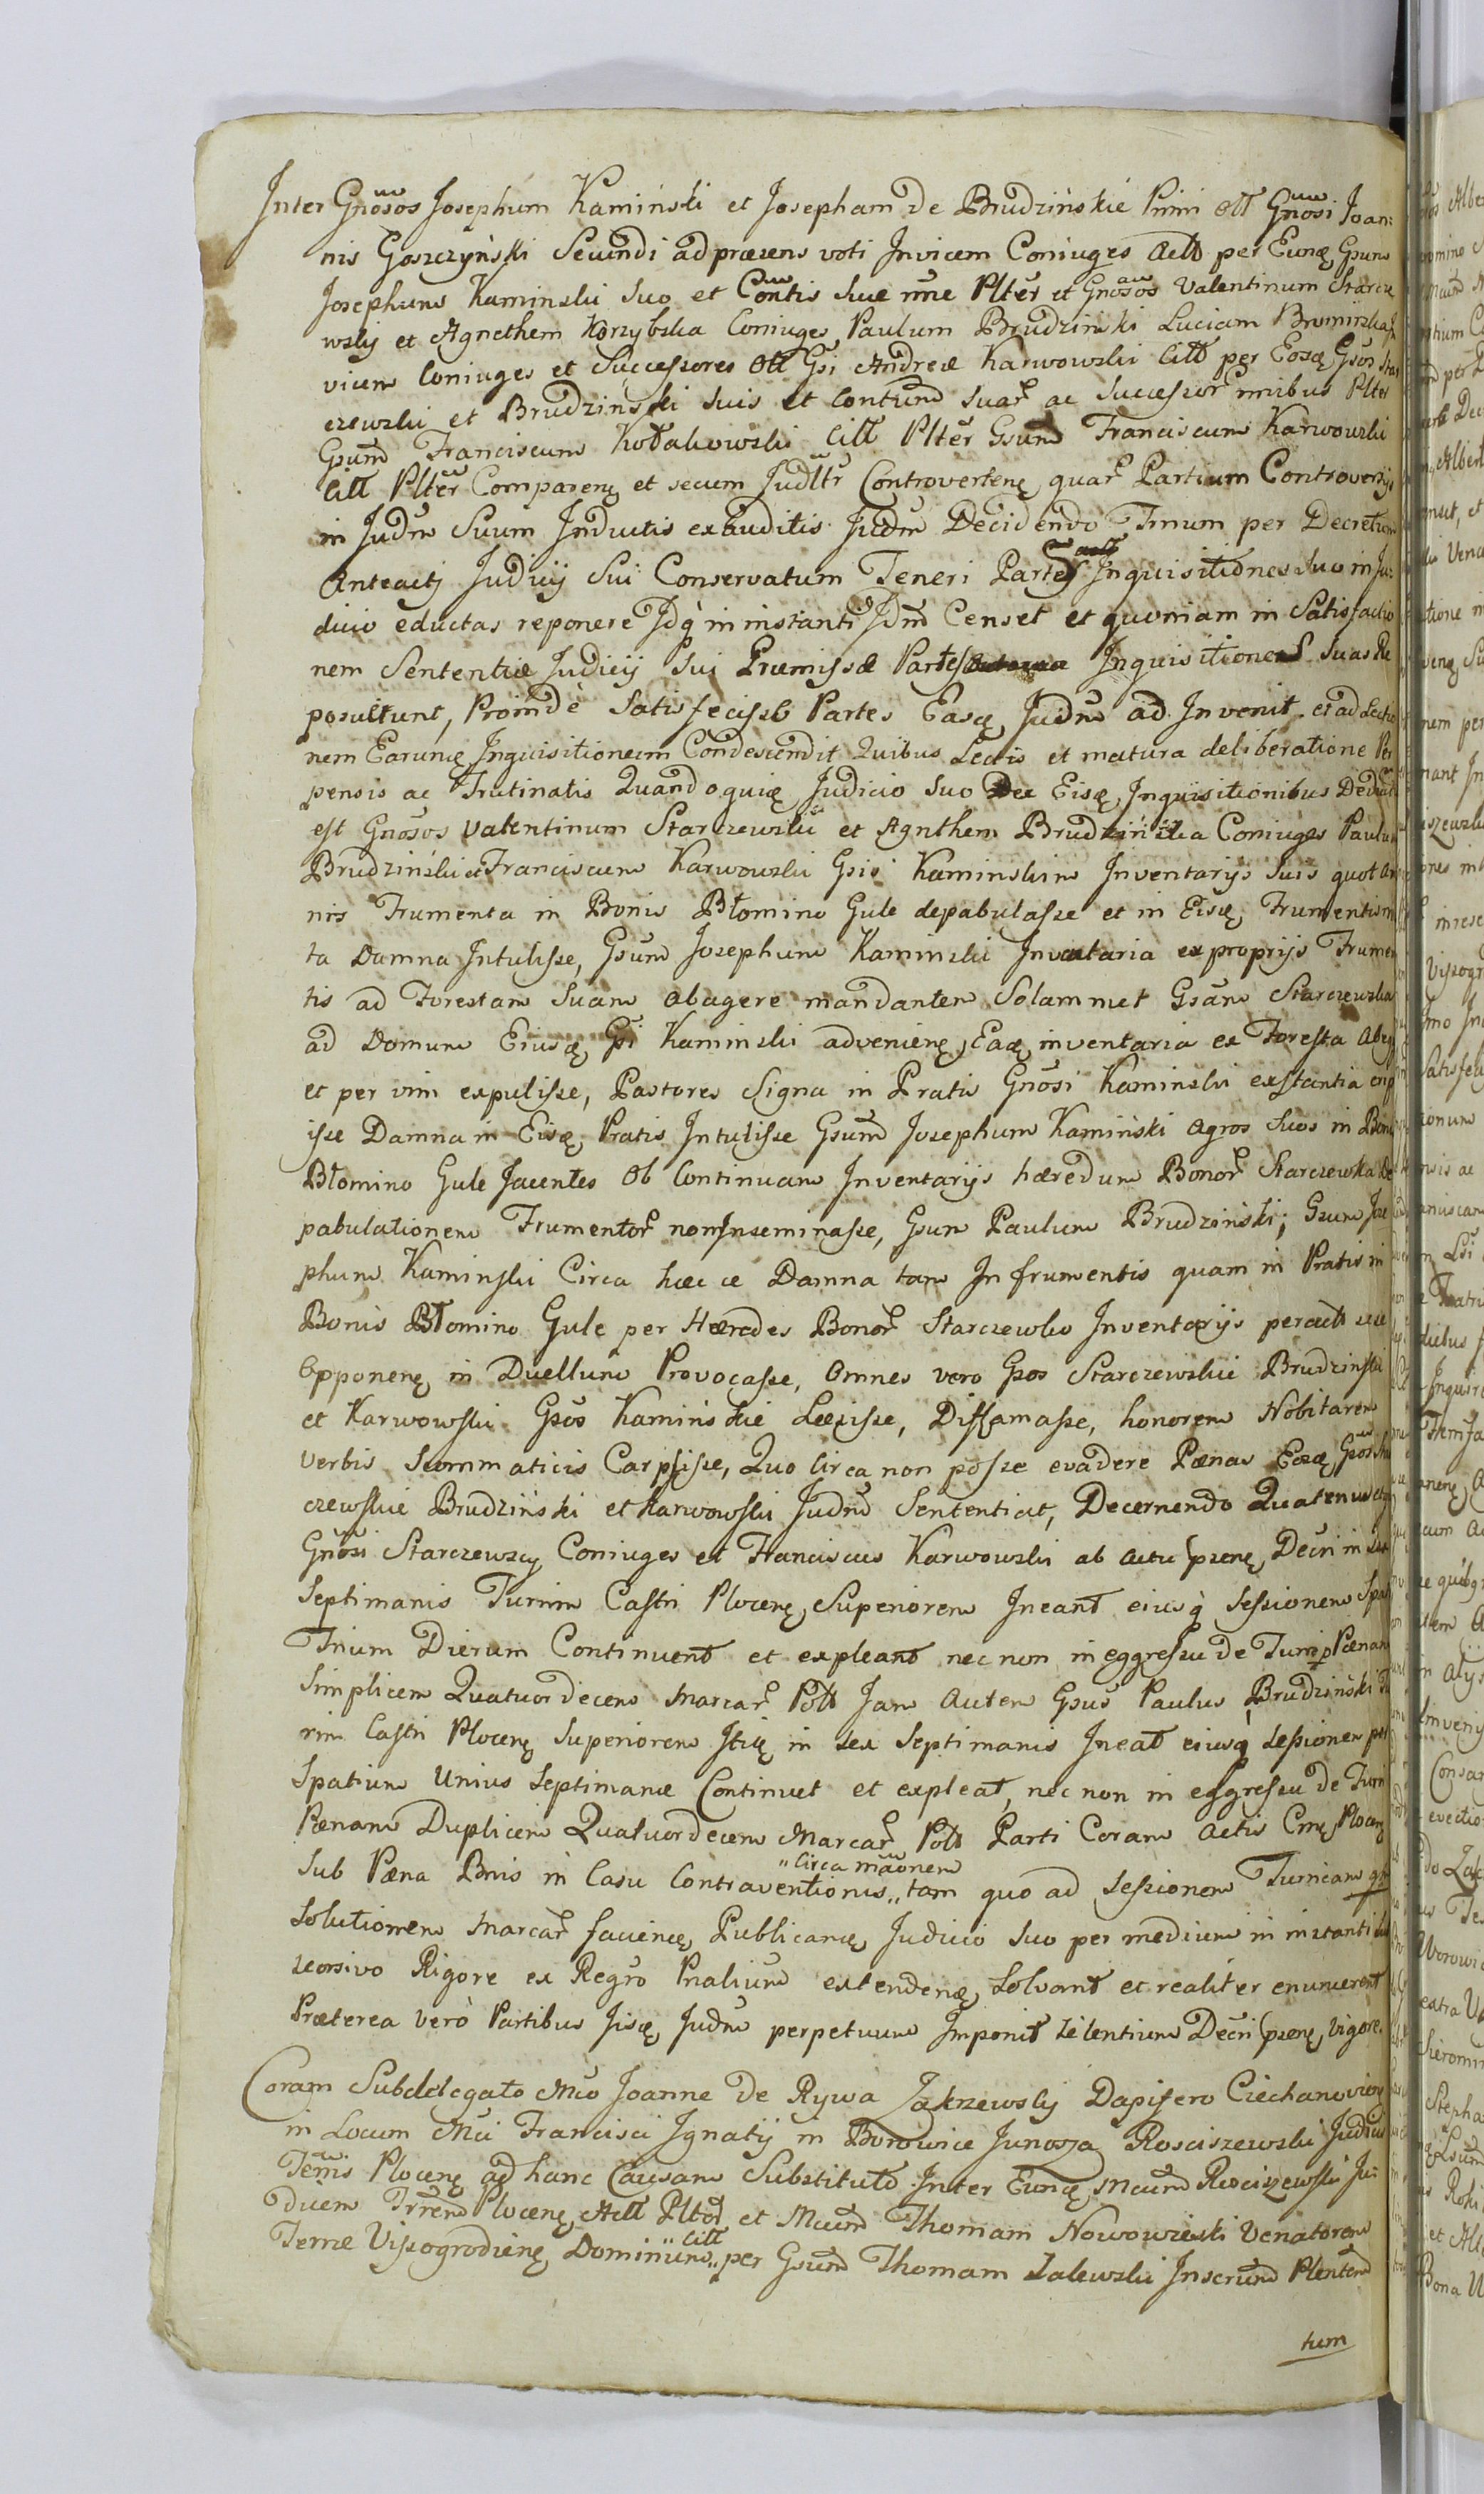 Inter Gnõsos Josephum Kaminski et Josepham de Brudzińskie Primi Oll Gnosi Joan:
nis Goszczyński Secundi ad præsens voti Invicem Coniuges Actt per Eunq Gsum
Josephum Kaminski suo et Contis suæ nne Plter et Gnosos Valentinum Starcze
wsky et Agnethem Korzybska Coniuges Paulum Brudzinski Luciam Bromirska In
vicem Coniuges et Successores Oll Gsi Andreæ Karwowski Citt per Eosq Gsos Star
czewski et Brudzinski suis et Contum suar ac Successor nnibus Plter
Gsum Franciscum Kołakowski Citt Plter Gsum Franciscum Karwowski
Citt Plter Comparenq et secum Judltr Controvertenq quar Partium Controversijs
in Judm Suum Inductis exauditis Judm Decidendo Tmum per Decretum
Anteactj Judicij Sui Conservatum Teneri Partes actt Inquisitiones suo in Ju:
dicio eductas reponere Idq in instanti Jdm Censet et quoniam in Satisfactio
nem Sententiæ Judicij sui Præmissæ Partes Inquisitiones suas Re
posuerunt, Proindè Satisfecisse Partes Easq Judm ad Invenit et ad Lectio
nem Earunq Inquisitionum Condescendit Quibus Lectis et matura deliberatione Per
pensis ac Trutinatis Quandoquiq Judicio suo Dee Eisq Inquisitionibus Deduct
est Gnosos Valentinum Starczewski et Agnthem Brudzińska Coniuges Paulum
Brudziński et Franciscum Karwowski Gsis Kaminskim Inventarijs suis quot An
nis Frumenta in Bonis Błomino Gule depabulasse et in Eisq Frumentis m
ta Damna Intulisse, Gsum Josephum Kaminski Inventaria ex proprijs Frumen
tis ad Forestam suam abagere mandantem Solammet Gsam Starczewska
ad Domum Eiusq Gsi Kaminski advenienq, Eaq inventaria ex Foresta Abeg
et per vim expulisse, Pastores Signa in Pratis Gnosi Kaminski exstantia erip
isse Damna in Eisq Pratis Intulisse Gsum Josephum Kamiński Agros suos in Bonis
Błomino Gule Jacentes Ob Continuam Inventarijs hæredum Bonor Starczewka De
pabulationem Frumentor non Inseminasse, Gsum Paulum Brudziński; Gsum Jose
phum Kaminski Circa hæc ce Damna tam In frumentis quam in Pratis in
Bonis Błomino Gule per Hæredes Bonor Starczewko Inventarijs peractt sese
Opponenq in Duellum Provocasse, Omnes vero Gsos Starczewskie Brudzinski
et Karwowski Gsos Kaminskie Læsisse, Diffamasse, honorem Nobitarem
verbis Scommaticis Carpsisse, Quo Circa non posse evadere Pænas Eosq Gsos Star
czewskie Brudziński et Karwowski Judm Sententiat, Decernendo Quatenus
Gnosi Starczewscy Coniuges et Franciscus Karwowski ab actu psenq Decri in sex
Septimanis Turrim Castri Plocenq Superiorem Ineant eiusq Sessionem Spa
Trium Dierum Continuent et expleant nec non in eggressu de Turri Pænam
Simplicem Quatuordecem Marcar Poll Jam Autem Gsus Paulus Brudziński Tu
rim Castri Plocenq Superiorem Itiq in sex Septimanis Ineat eiusq Sessionem per
Spatium Unius Septimanæ Continuet et expleat, nec non in eggressu de Turri
Pænam Duplicem Quatuordecem Marcar Poll Parti Coram Actis Cmq Plocenq
Sub Pæna Bnis in Casu Contraventionis „Circa mãonem„ tam quo ad Sessionem Turricam
Solutionem Marcar facienq Publicanq Judicio suo per medium in instanti
seorsivo Rigore ex Regro Pnalium extendenq Solvant et realiter enumerent
Præterea verò Partibus Jisq Judm perpetuum Imponit Silentium Decri psenq vigore.
Coram Subdelegato Mco Joanne de Rywa Zakrzewsky Dapifero Ciechanovienq
in Locum Mci Francisci Ignatij in Borowice Junosza Rosciszewski Judicis
Terris Plocenq ad hanc Causam Substituto Inter Eunq Mcum Rosciszewski Ju:
dicem Trrem Plocenq Actt Pltod et Mcum Thomam Nowowieski Venatorem
Terræ Vissogrodienq Dominum „Citt„ per Gsum Thomam Zalewski Inscrum Plentem
tum